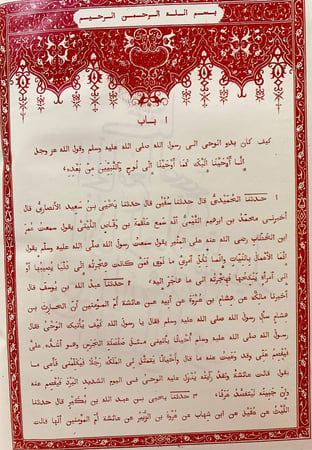 بسم الله الرحمن الرحيم
١ باب
كيف كان بدو الوحى الى رسول الله صلى الله عليه وسلم وقول الله عز وجل
إنَّا أَوْحَيْنَا إلَيْكَ كَمَا أَوْحَيْنَا إلَى نُوحٍ وَالنَّبِيِّينَ مِنْ بَعْدِهِ
١ حدثنا الحُمَيْدىُّ قال حدثنا سُفْين قال حدثنا يَحْيَى بنُ سعيد الأنصارىُّ قال
أخبرنى محمّد بن ابرهيم التَّيْمىُّ أنّه سمع عَلْقَمة بنَ وقّاصٍ اللَّيْثىَّ يقول سمعت عُمَرَ
ابن الخطّاب رضى الله عنه على المنْبَر يقول سمعتُ رسول الله صلى الله عليه وسلم يقول
إنّما الأعْمالُ بالنِّيَّات وإنّما لكُلِّ امرئٍ ما نَوَى فمَنْ كانت هِجْرتُه إلى دُنْيا يُصيبُها أو
إلى امرأة يَنْكِحُها فهِجْرَتُه الى ما هاجَرَ اليه ٢ حدثنا عبد الله بن يُوسُفَ قال
أخبرنا مالكٌ عن هِشام بن عُرْوةَ عن أبيه عن عائشةَ أمّ المؤمنين أنّ الحارِثَ بنَ
هشامٍ سأل رسول الله صلى الله عليه وسلم فقال يا رسول الله كَيْفَ يأتيكَ الوَحْىُ فقال
رسول الله صلى الله عليه وسلم أحْيانًا يأتينى مثْلَ صَلْصَلة الجَرَس وهو أشَدُّه علىَّ
فيَفْصِمُ عنّى وقد وعَيْتُ عنه ما قال وأحيانًا يتمثّل لِىَ المَلَكُ رَجُلًا فيُكلِّمُنى فأَعِى ما
يقول قالت عائشةُ ولقد رأيتُه يَنْزِل عليه الوحى فى اليوم الشديد البَرْدِ فيَفْصِمُ عنه
وإنَّ جَبِينَه لَيَتفصَّدُ عَرَقًا ٣ حدثنا يحيى بن عبد الله بن بُكَيْر قال حدثنا
اللَّيْث عن عُقَيْل عن ابن شِهاب عن عُرْوة بن الزُّبَيْر عن عائشةَ أمّ المؤمنين أنّها قالت